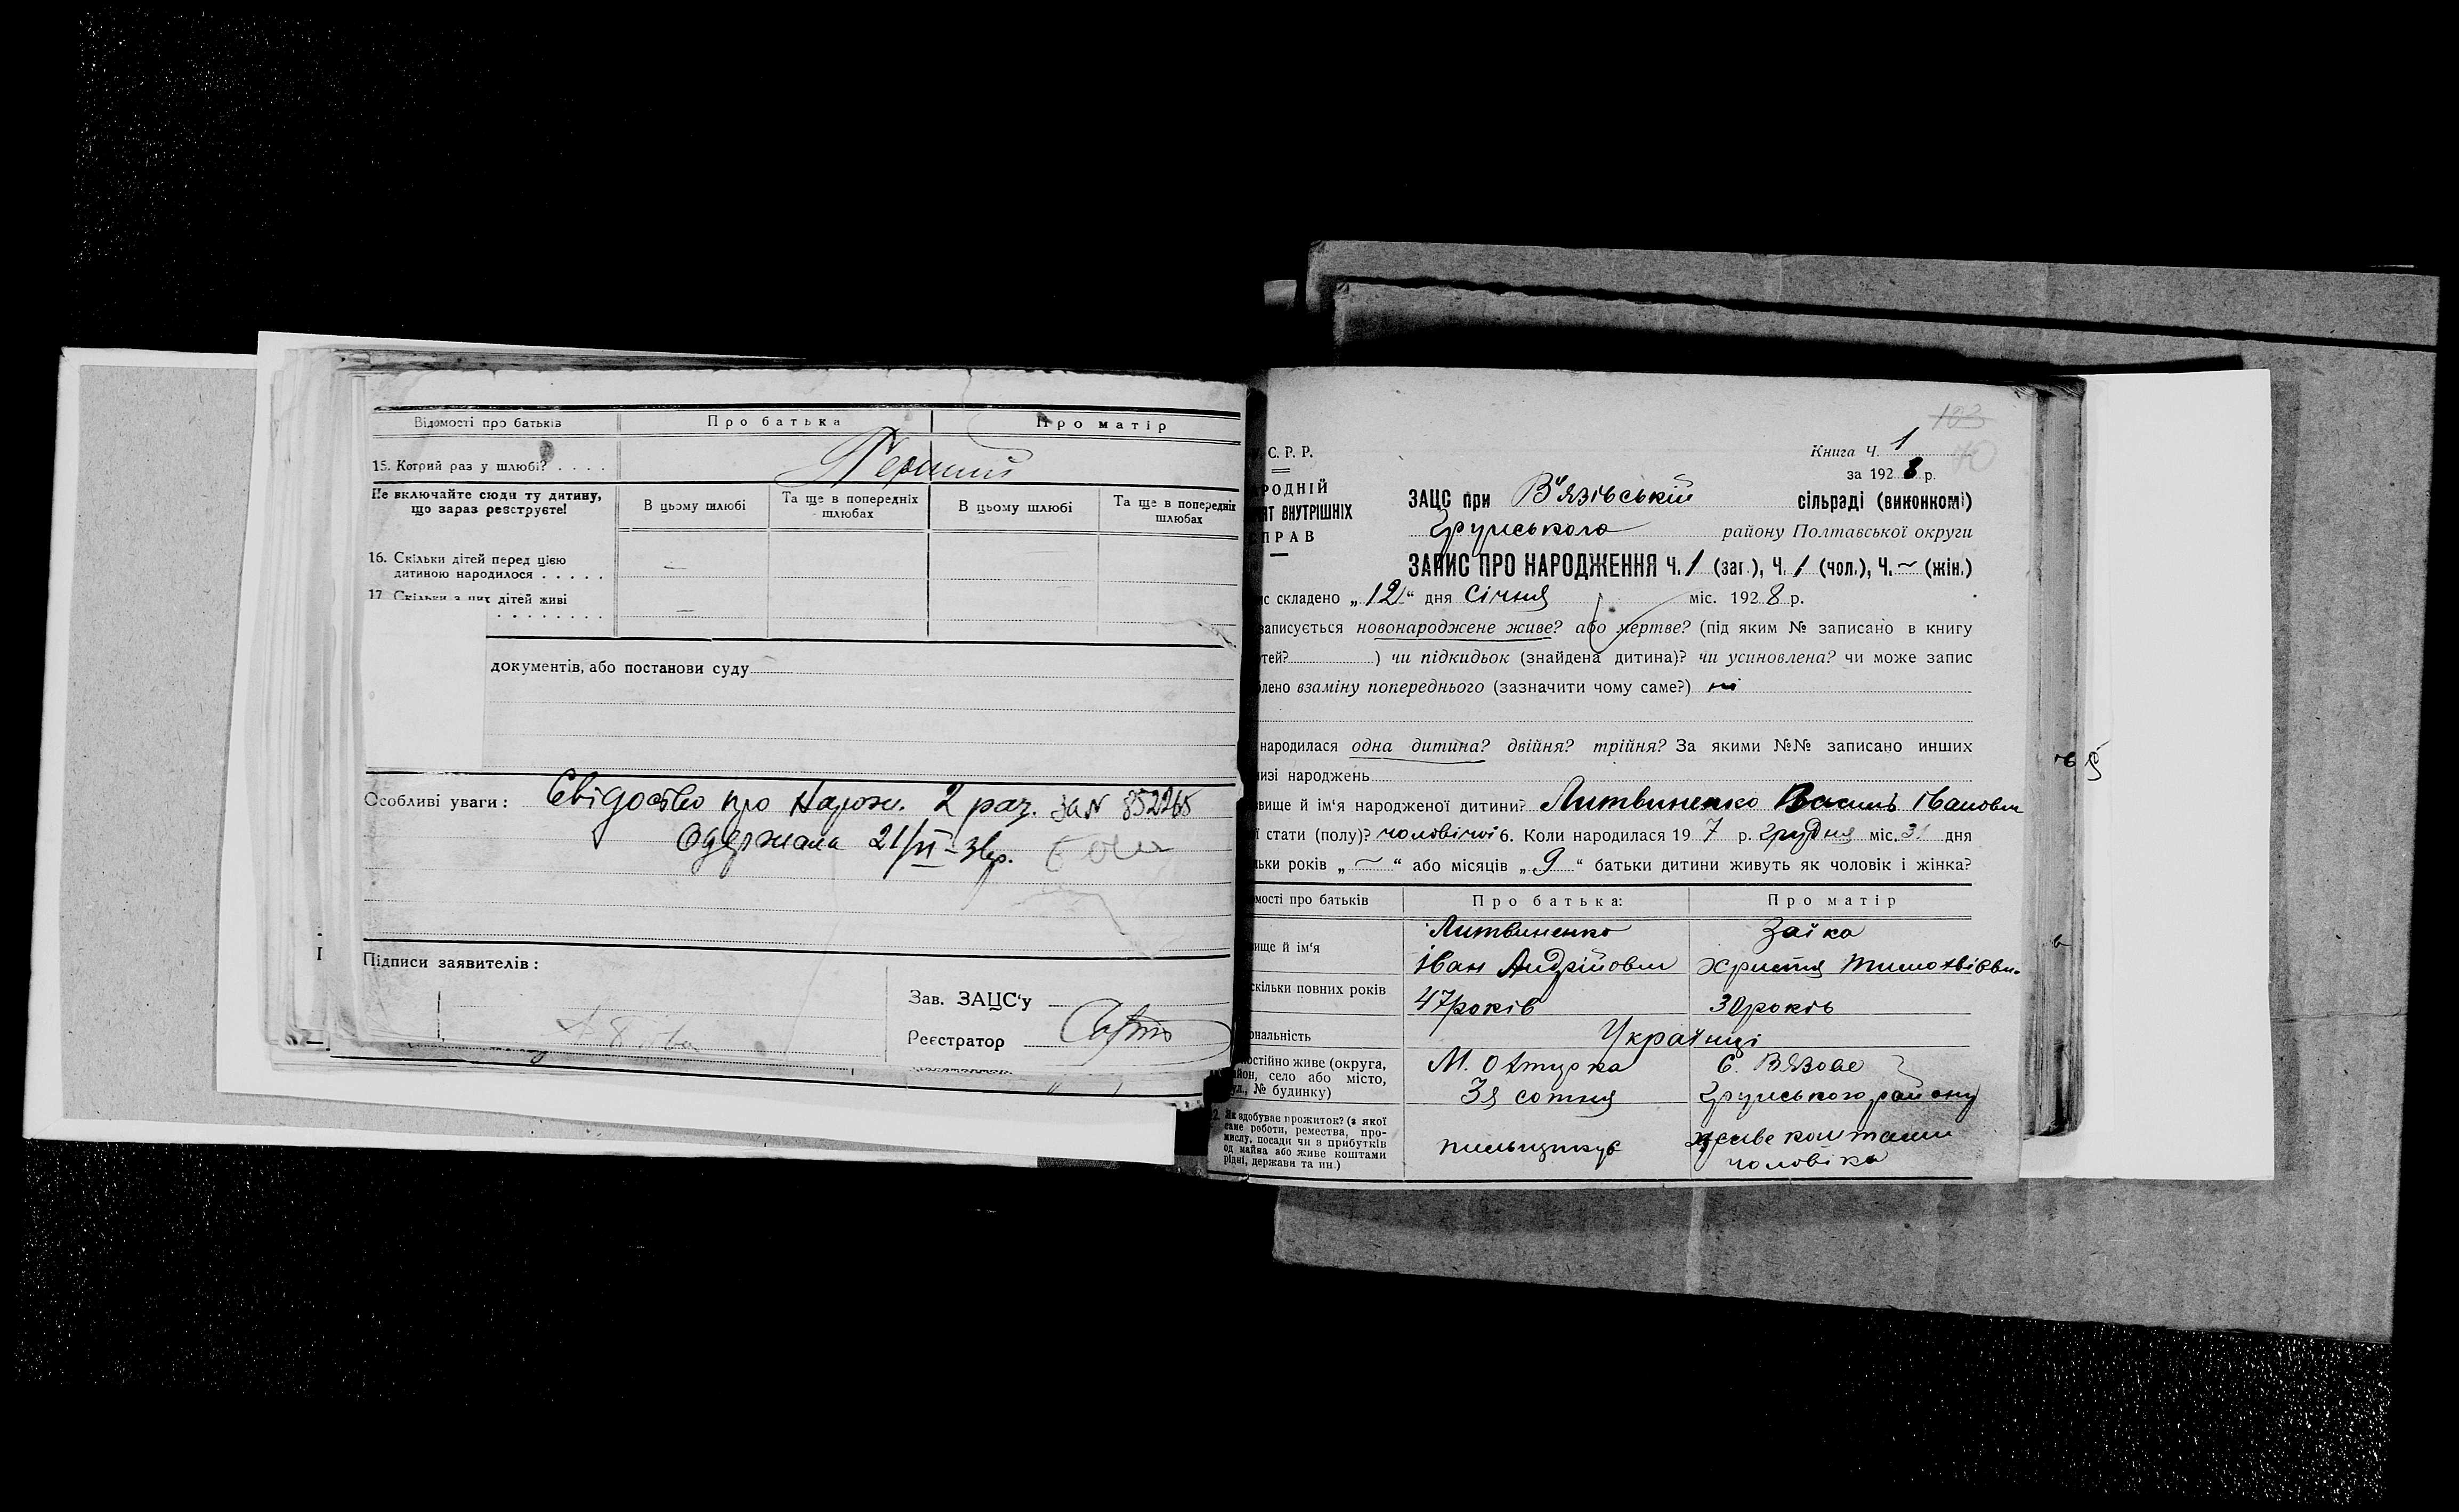 Відомості про батьків Про батька Про матір
15. Котрий раз у шлюбі? . . . . Перший
Не включайте сюди ту дитину, що зараз реєструєте!
В цьому шлюбі Та ще в попередніх шлюбах В цьому шлюбі Та ще в попередніх шлюбах
16. Скільки дітей перед цією
дитиною народилося . . . . . —
17. Скільки з них дітей живі
. . . . . . . . —
документів, або постанови суду
Особливі уваги: Свідоство про Народж. 2 раз. за № 852265
Одержала 21/VI-
Підписи заявителів:
Зав. ЗАЦС'у
Реєстратор
103
Книга Ч. 1
С. Р. Р.
за 1928 р.
РОДНІЙ
ЗАЦС при В'язівській сільраді (виконкомі)
АТ ВНУТРІШНІХ
Грунського району Полтавської округи
ПРАВ
ЗАПИС ПРО НАРОДЖЕННЯ Ч. 1 (заг.), Ч. 1 (чол.), Ч. ~ (жін.)
с складено „12“ дня Січня міс. 1928 р.
записується новонароджене живе? або мертве? (під яким № записано в книгу
тей? ) чи підкидьок (знайдена дитина)? чи усиновлена? чи може запис
блено взаміну попереднього (зазначити чому саме?) ні
народилася одна дитина? двійня? трійня? За якими №№ записано инших
изі народжень
вище й ім'я народженої дитини? Литвиненко Василь Іванович
ї стати (полу)? чоловічої 6. Коли народилася 19 7 р. Грудня міс. 31 дня
льки років „~“ або місяців „9“ батьки дитини живуть як чоловік і жінка?
мості про батьків Про батька: Про матір
вище й ім'я
Литвиненко Заїка
Іван Андрійович Христя
скільки повних років 47 років 30 років
ональність Українці
остійно живе (округа, район, село або місто, вул., № будинку)
М. Охтирка С. Вязове
3я сотня Грунського району
2. Як здобуває прожиток? (з якої
саме роботи, ремества, про-
мислу, посади чи з прибутків
од майна або живе коштами
рідні, держави та ин.)
пильщикує живе коштами
чоловіка